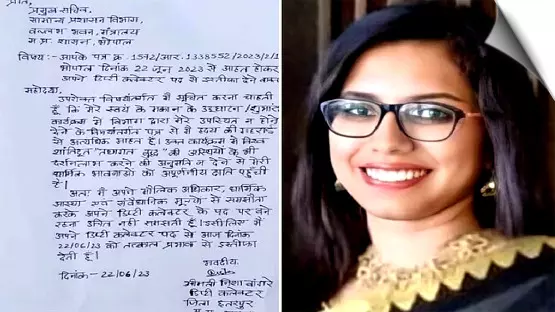 प्रति,
प्रमुख सचिव,
सामान्य प्रशासन विभाग,
वल्लभ भवन, मंत्रालय
म.प्र. शासन, भोपाल
विषय :- आपके पत्र क्र. 1542/आर.1338552/2023/2/1
भोपाल दिनांक 22 जून 2023 से आहत होकर
अपने डिप्टी कलेक्टर पद से इस्तीफा देने
महोदया,
उपरोक्त विषयांतर्गत में सूचित करना चाहती
हूँ कि मेरे स्वयं के मकान के उद्घाटन
कार्यक्रम में विभाग द्वारा मेरे उपस्थित न होने
देने के विषयांतर्गत पत्र से मैं हृदय की गहराई
से अत्यधिक आहत हूँ। उक्त कार्यक्रम में विश्व
शांतिदूत "तथागत बुद्ध" की अस्थियों के भी
दर्शनलाभ करने की अनुमति न देने से मेरी
धार्मिक भावनाओं को अपूर्णनीय क्षति पहुँची
है।
अतः मैं अपने मौलिक अधिकार, धार्मिक
आस्था एवं संवैधानिक मूल्यों से समझौता
करके अपने डिप्टी कलेक्टर के पद पर बने
रहना उचित नहीं समझती हूँ। इसीलिए मैं
अपने डिप्टी कलेक्टर पद से आज दिनांक
22/06/23 को तत्काल प्रभाव से इस्तीफा
देती हूँ।
भवदीय
दिनांक - 22/06/23
श्रीमती निशा बांगरे
डिप्टी कलेक्टर
जिला छतरपुर